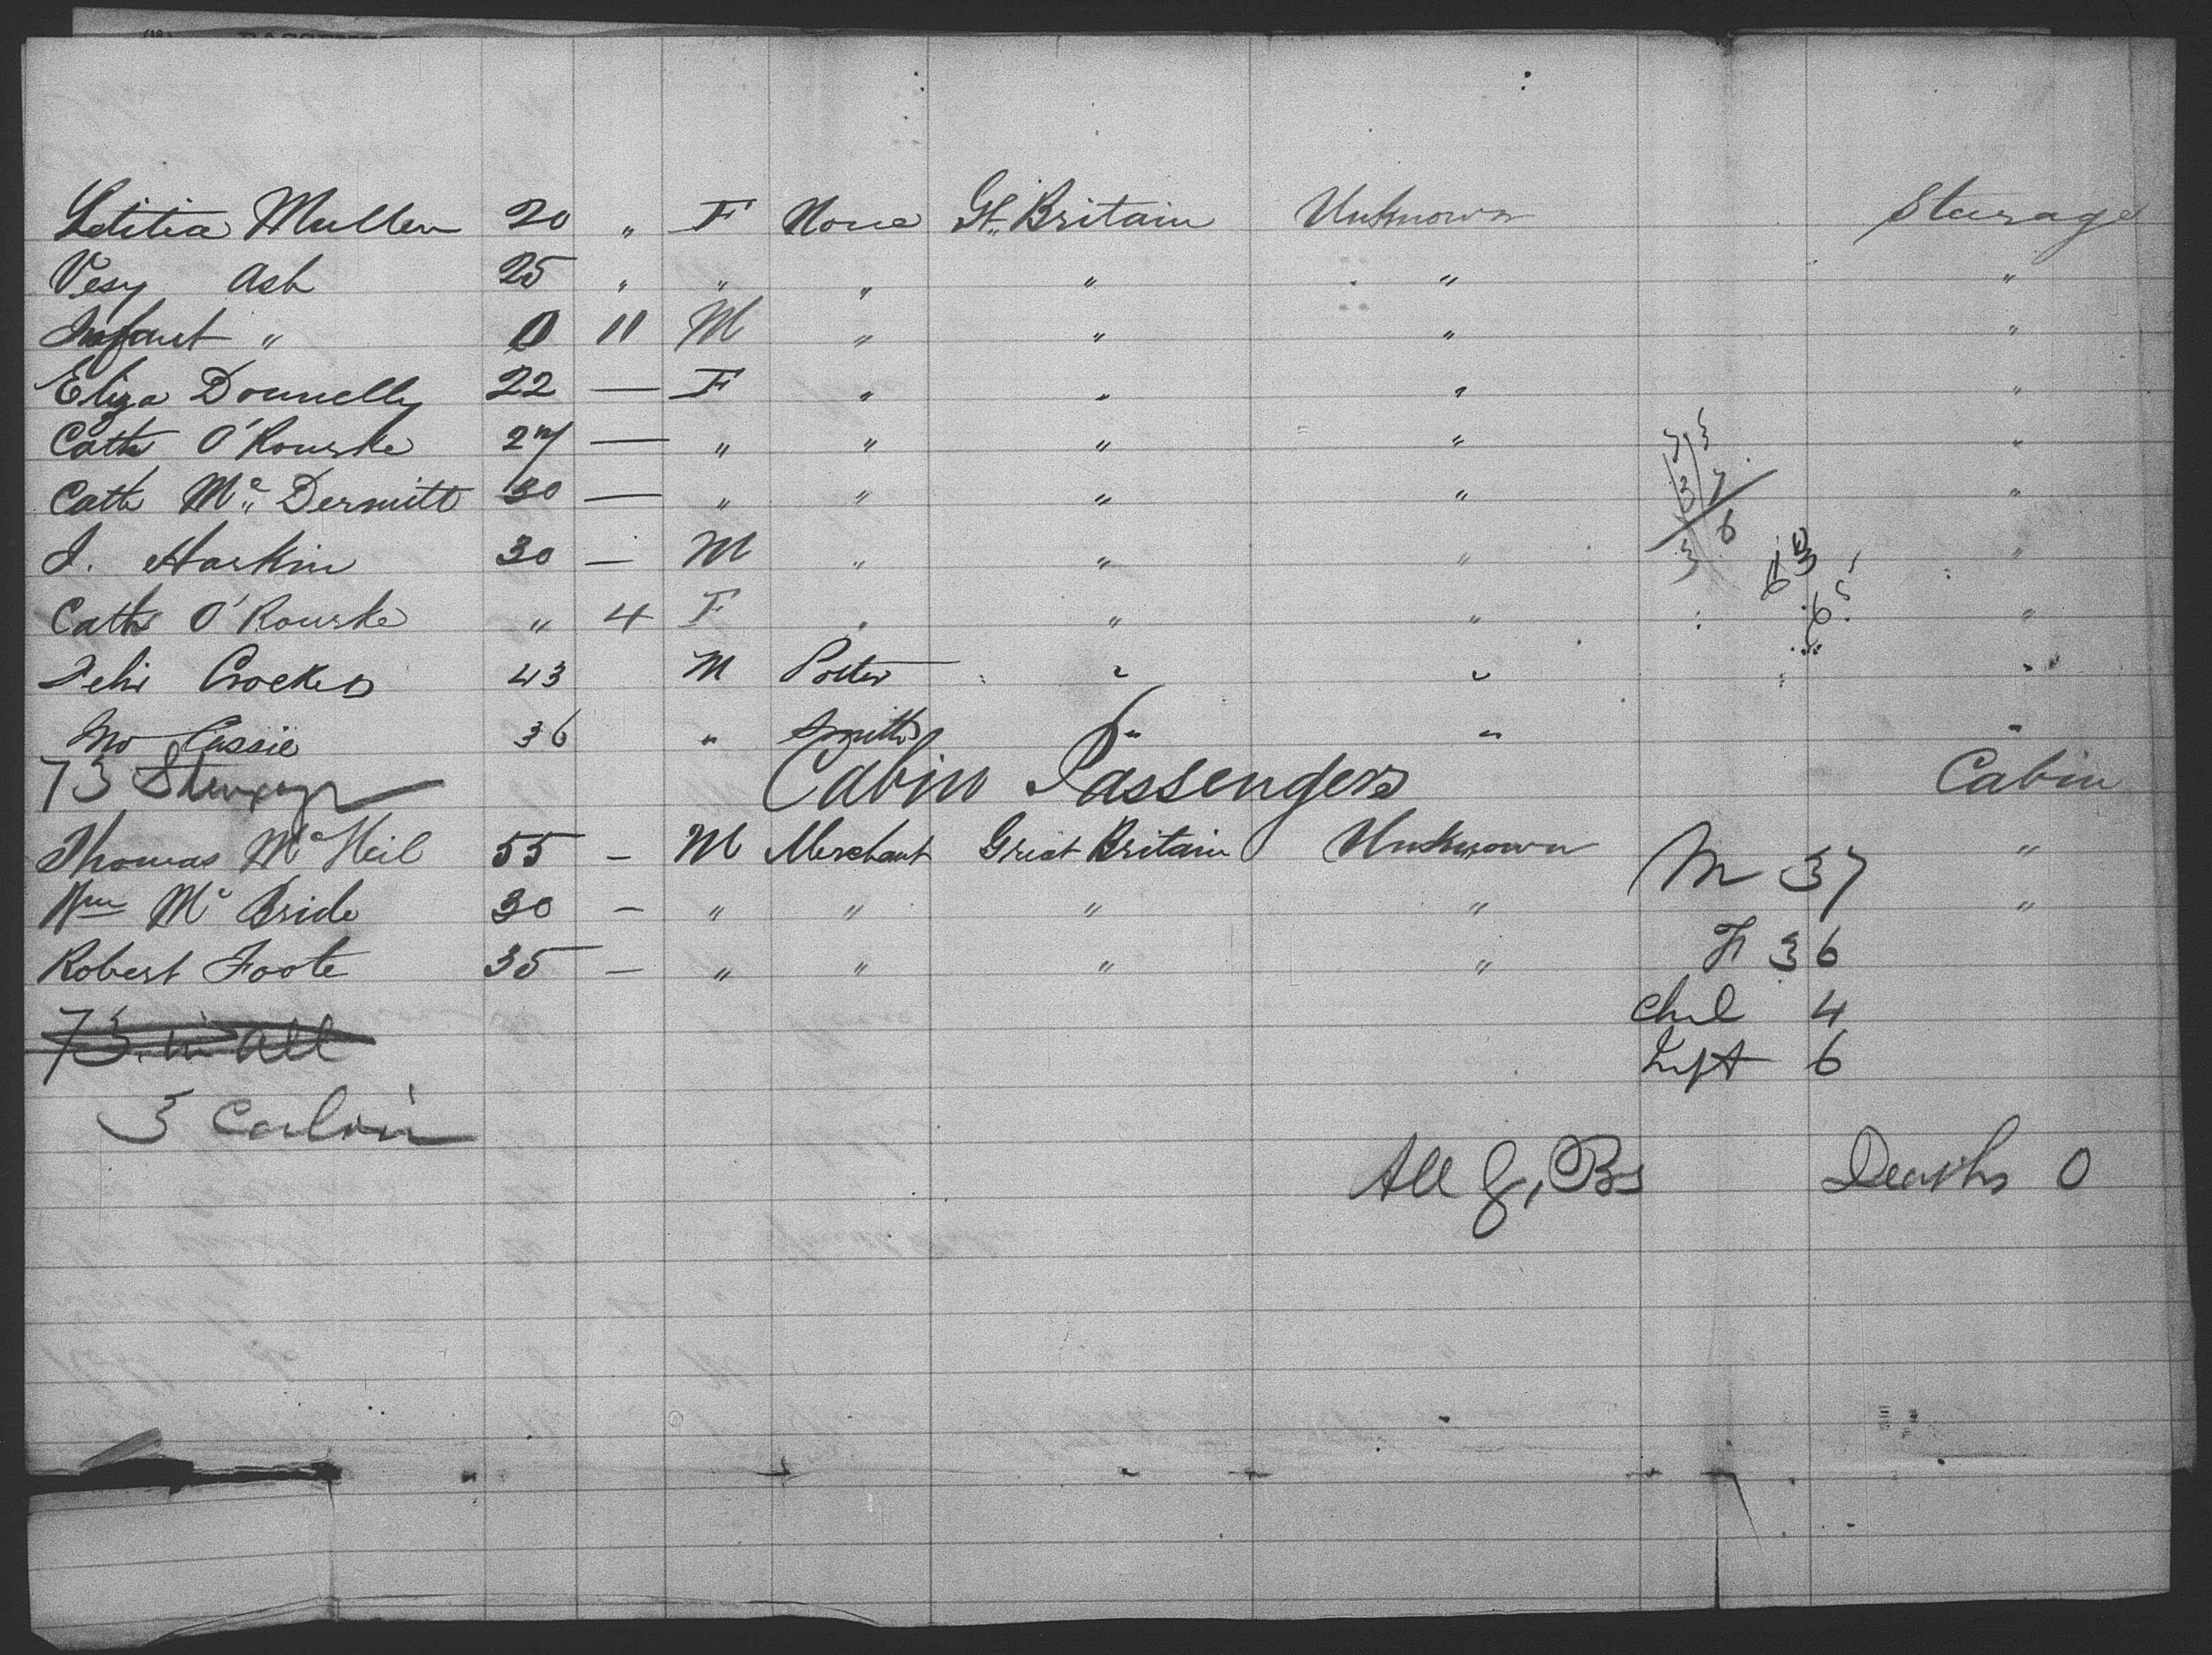 Letitia Mullen 20 " F None Gt. Britain Unknown Sterage
Vesy Ash 25 " " " " " "
Infant " 0 11 M " " " "
Eliza Donnelly 22 — F " " " "
Cath O'Rourke 27 — " " " " "
Cath Mc Dermitt 30 — " " " " "
J. Harkin 30 — M " " " "
Cath O'Rourke " 4 F " " " "
Felix Crocker 43 M Potter " " "
Jno Cassie 36 " Smith " " "
73 Steerage Cabin Passengers Cabin
Thomas Mc Neil 55 — M Merchant Great Britain Unknown "
M 37
Wm Mc Bride 30 — " " " " "
F 36
Robert Foote 35 — " " " "
Chil 4
73 in all
Inft 6
3 Cabin
All G, Bs Deaths 0